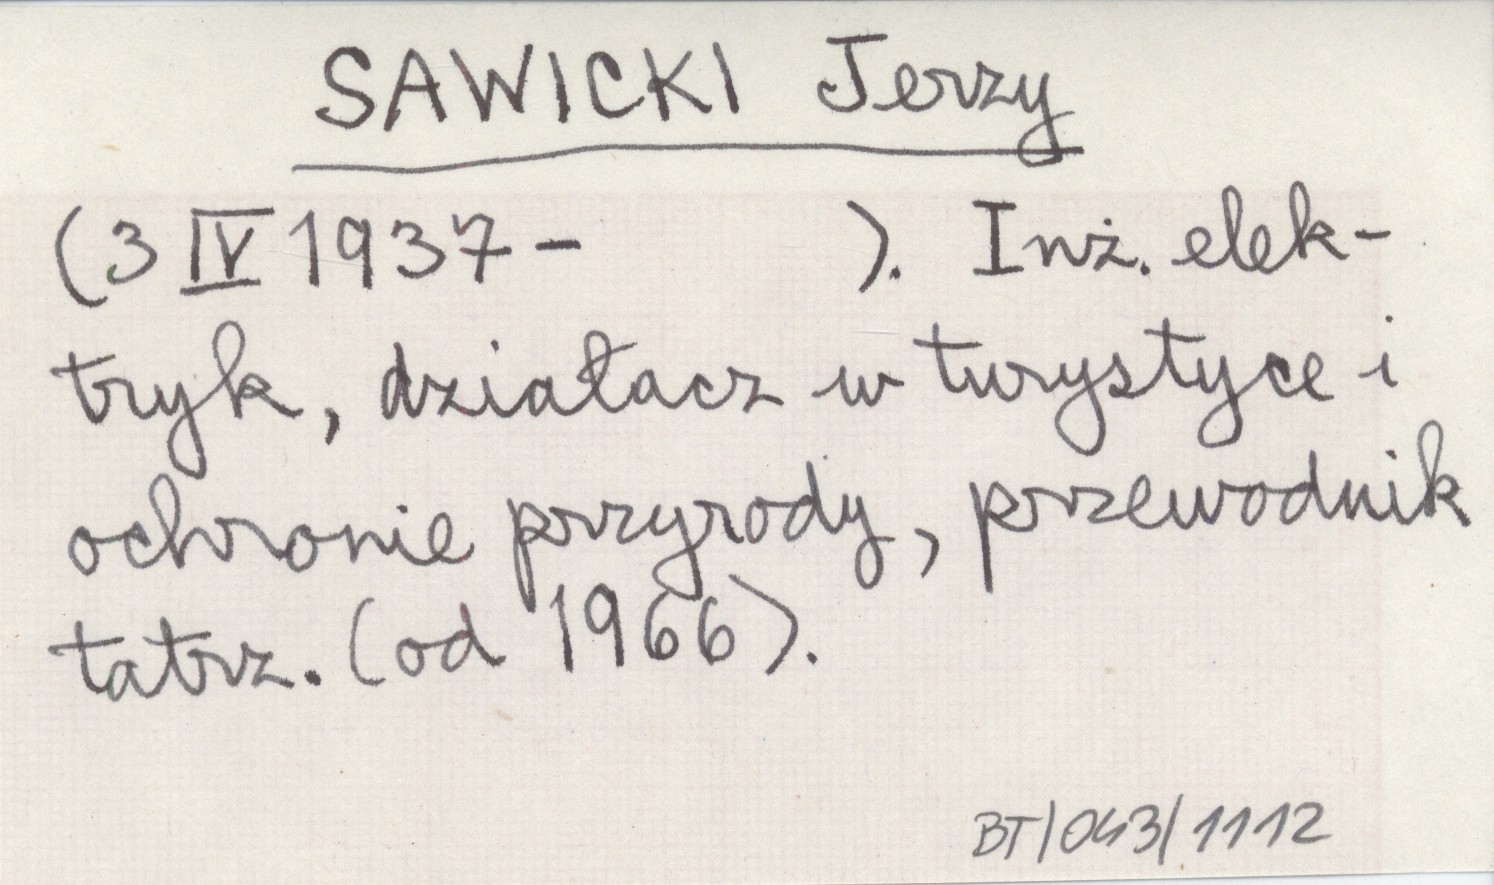 SAWICKI Jerzy
(3 IV 1937 - ). Inż. elek-
tryk, działacz w turystyce i
ochronie przyrody, przewodnik
tatrz. (od 1966).
BT/043/1112